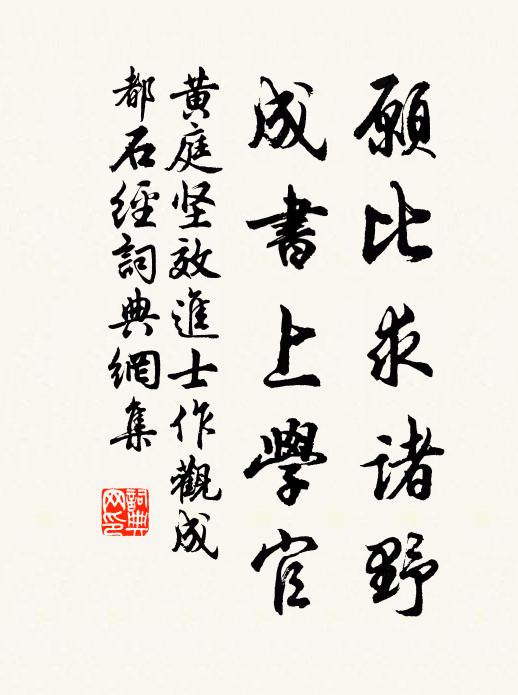 願比求諸野
成書上學官
黄庭坚效進士作觀成
都石經詞典網集
詞典
网印